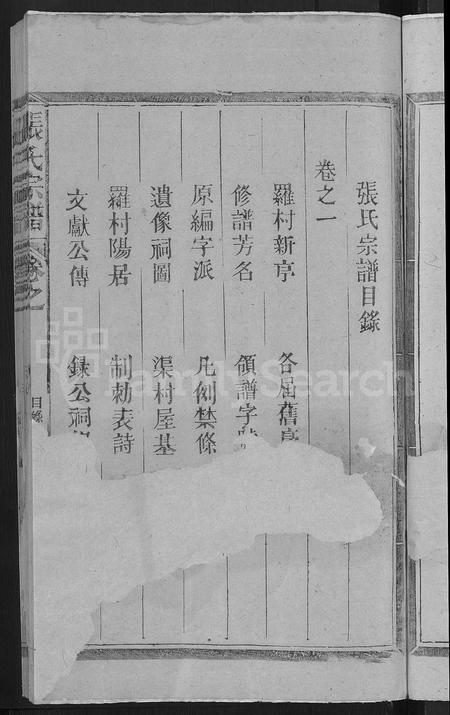 張氏宗譜目錄
卷之一
羅村新亭 各屆舊亭
修譜芳名 領譜字號
原編字派 凡例禁條
遺像祠圖 渠村屋基
羅村陽居 制勅表詩
文獻公傳 錄公祠
張氏宗譜 卷之一 目錄
FamilySearch